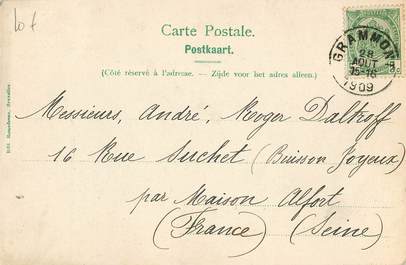 lot
Carte Postale.
Postkaart.
(Côté réservé à l'adresse. - Zijde voor het adres alleen.)
GRAMMONT
28
AOUT
15-16
1909
Messieurs, André, Roger Daltroff
16 Rue Suchet (Buisson Joyeux)
par Maison Alfort
(France) (Seine)